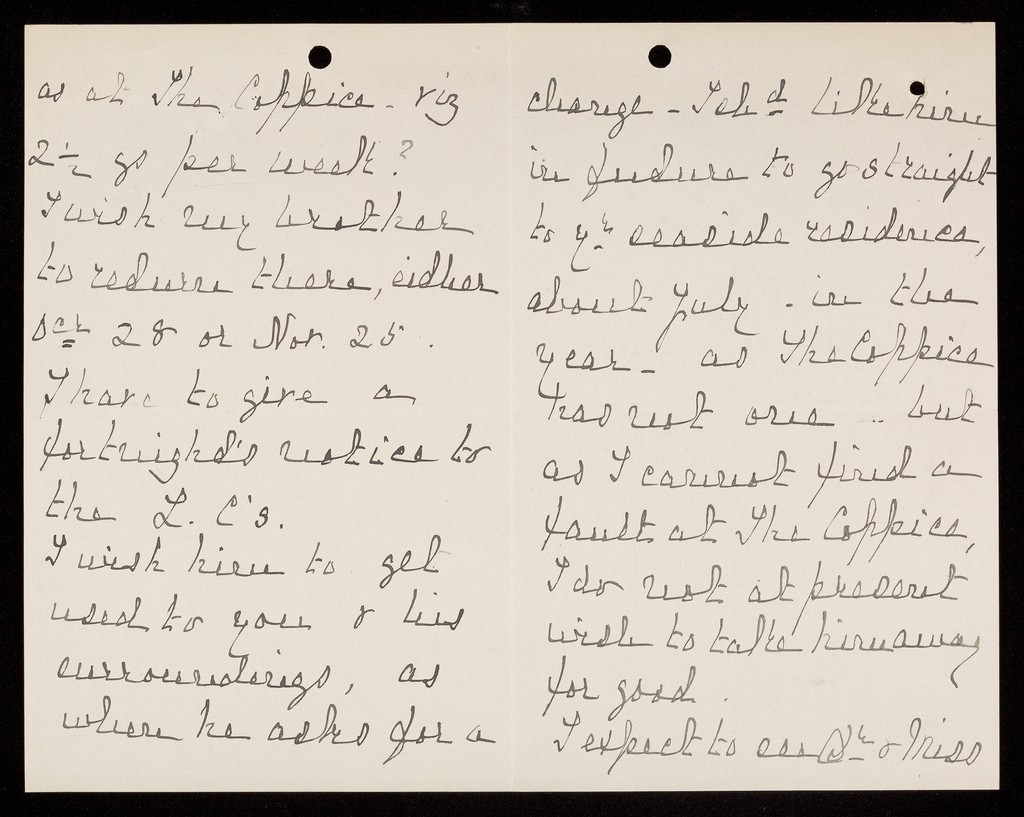 as at The Coppice - viz
2½ gs per week?
I wish my brother
to return there, either
Oct 28 or Nov. 25.
I have to give a
fortnight's notice to
the L. C's.
I wish him to get
used to you & his
surroundings, as
when he asks for a
change - I shd like him
in future to go straight
to yr seaside residence,
about July - in the
year - as The Coppice
has not one - but
as I cannot find a
fault at The Coppice,
I do not at present
wish to take him away
for good.
I expect to see Dr & Miss